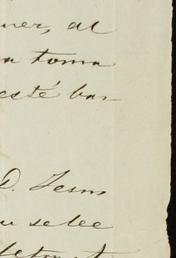 ner, al
a toma
esté ban
D. Jesus
se lee